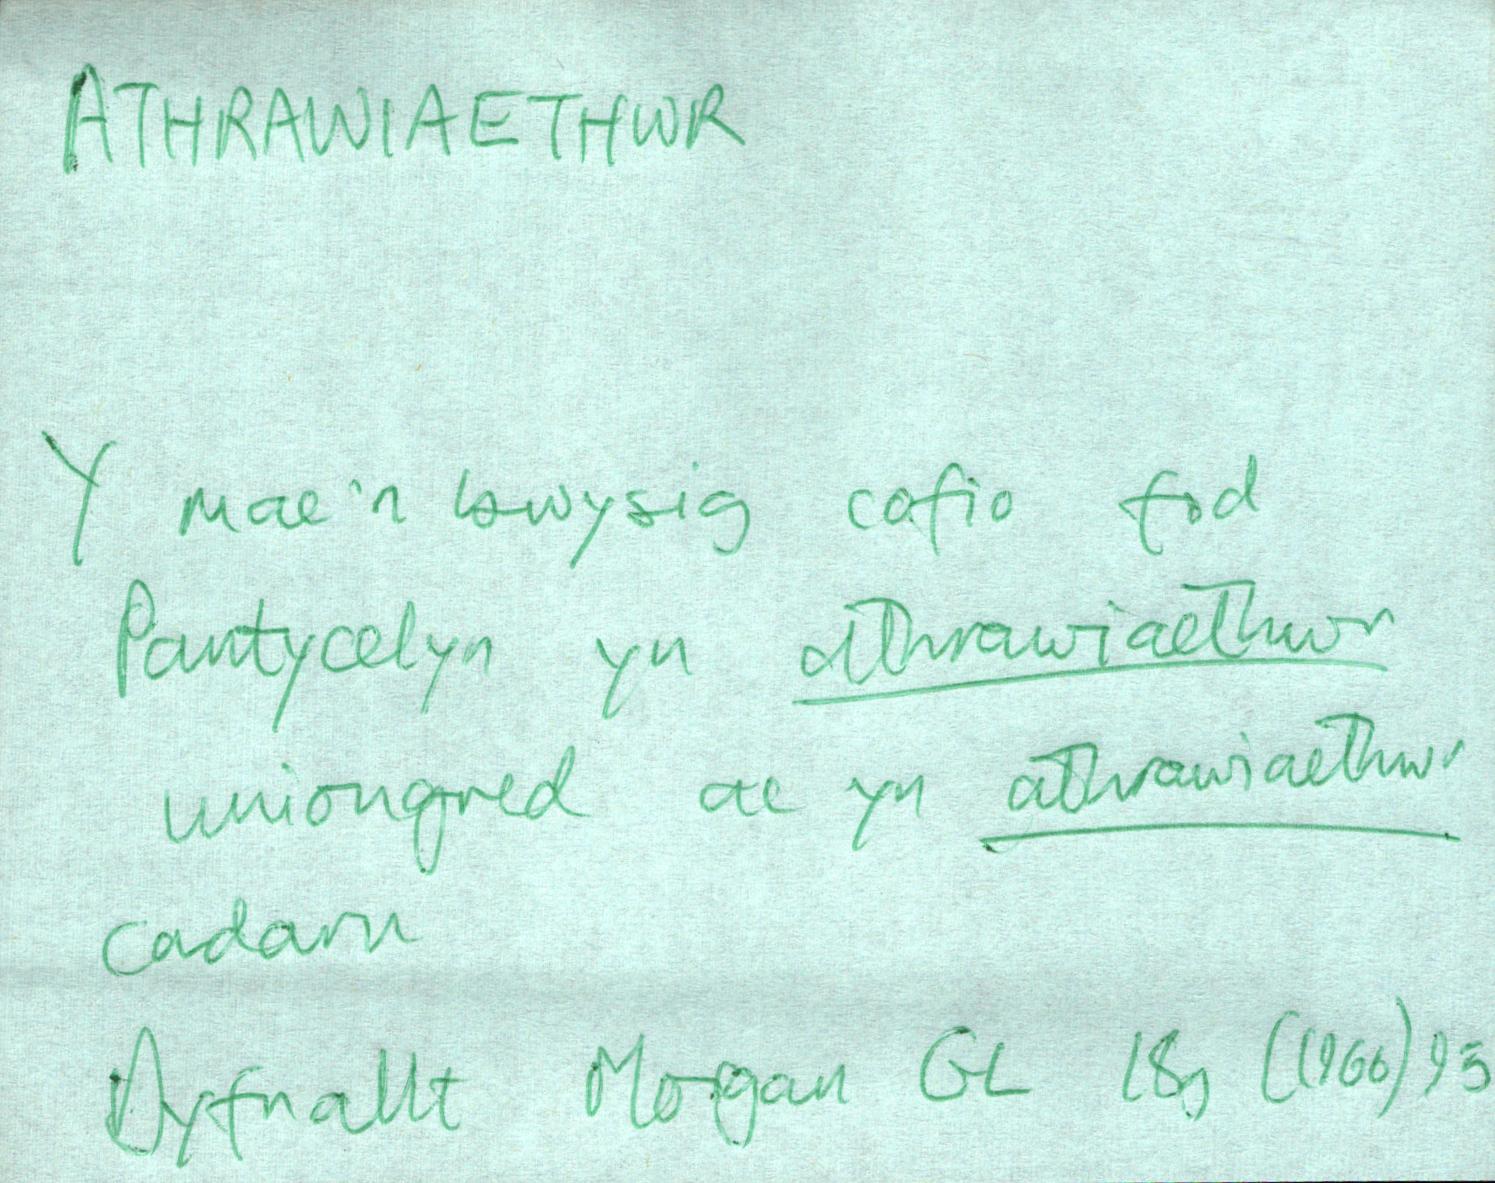 ATHRAWIAETHWR
Y mae'n bwysig cofio fod
Pantycelyn yn athrawiaethwr
uniongred ac yn athrawiaethwr
cadarn
Dyfnallt Morgan GL 18g (1966) 95